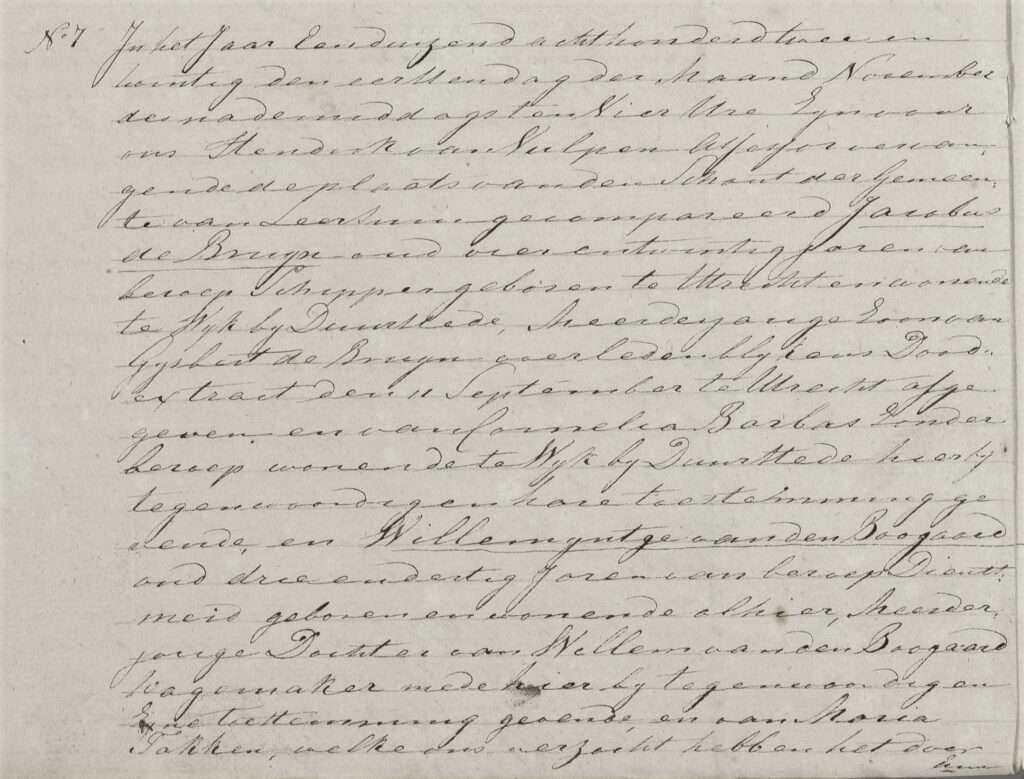 No 7 In het Jaar Eenduizend achthonderd twee en
twintig den eersten dag der Maand November
des nademiddags ten Vier Ure Zyn voor
ons Hendrik van Vulpen Assessor vervan,
gende de plaats van den Schout der Gemeen,
te van Leersum gecompareerd Jacobus
de Bruyn oud vier en twintig jaren van
beroep Schipper geboren te Utrecht en wonende
te Wyk by Duurstede, Meerderjarige Zoon van
Gysbert de Bruyn overleden blykens Dood,
extract den 11 September te Utrecht afge
geven en van Cornelia Barbas Zonder
beroep wonende te Wyk by Duurstede hierby
tegenwoordig en hare toestemming ge
vende, en Willemyntge van den Boogaard
oud drie en dertig Jaren van beroep Dienst,
meid geboren en wonende alhier, Meerder,
jarige Dochter van Willem van den Boogaard
Wagemaker mede hier by tegenwoordig en
Zyne toestemming gevende, en van Maria
Takken, welke ons verzocht hebben het door